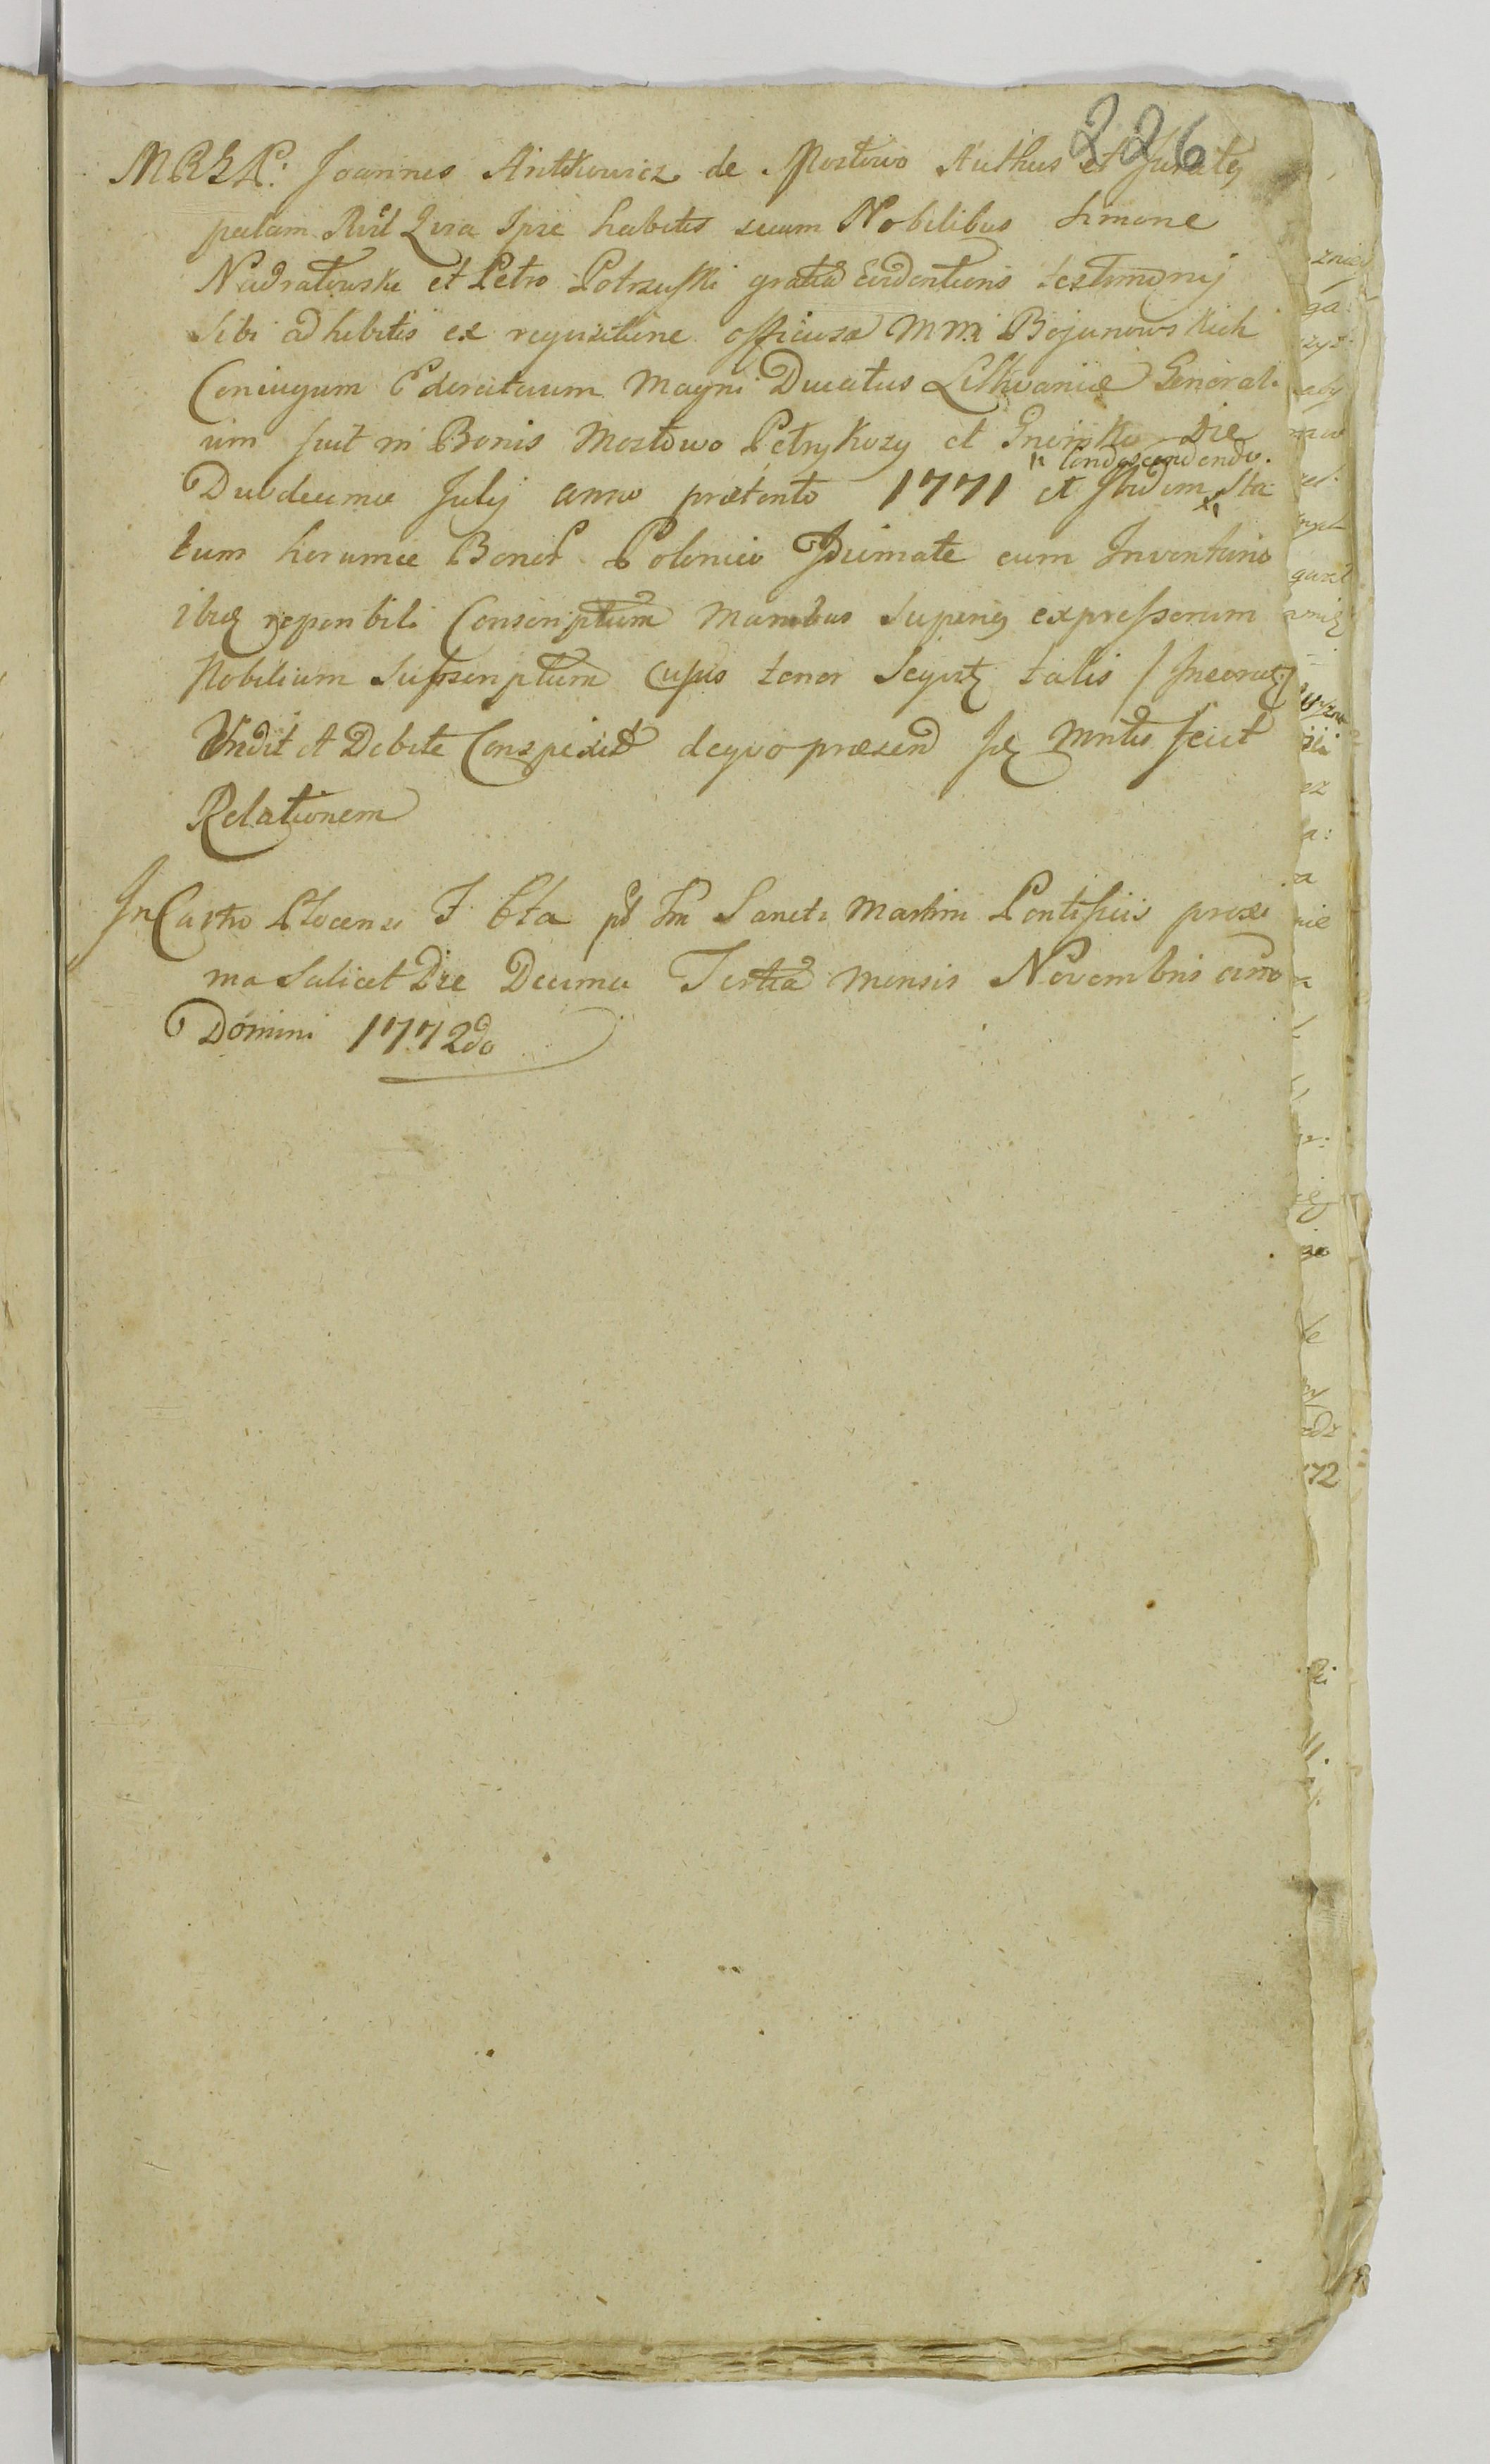 226
M R G P: Joannes Antkowicz de Mostowo Authus et Juratq
palam Rvil Lira Ipse habitis secum Nobilibus Simone
Nadratowski et Petro Potrzuski gratia Evidentioris testimonij
Sibi adhibitis ex requisitione officiosa M M Bojanowskich
Coniugum Exercituum Magni Ducatus Lithvaniæ General.
ium fuit in Bonis Mostowo Petrykozy et Gnoisko Die
condescendendo.
Duodecima July anno prætento 1771 et ibidem Sta
tum horumce Bonor Polonico Idiomate cum Inventario
ibiq reponibili Conscriptum Manibus Superiq expressorum
Nobilium Subscriptum cujus tenor Seqvitq talis / Ineratq/
Vidit et Debite Conspexit deqvo præsend Sq Mntis fecit
Relationem
In Castro Plocensi F. 6ta pt Fm Sancti Martini Pontificis proxi
ma Scilicet Die Decima Tertia Mensis Novembris anno
Domini 1772do